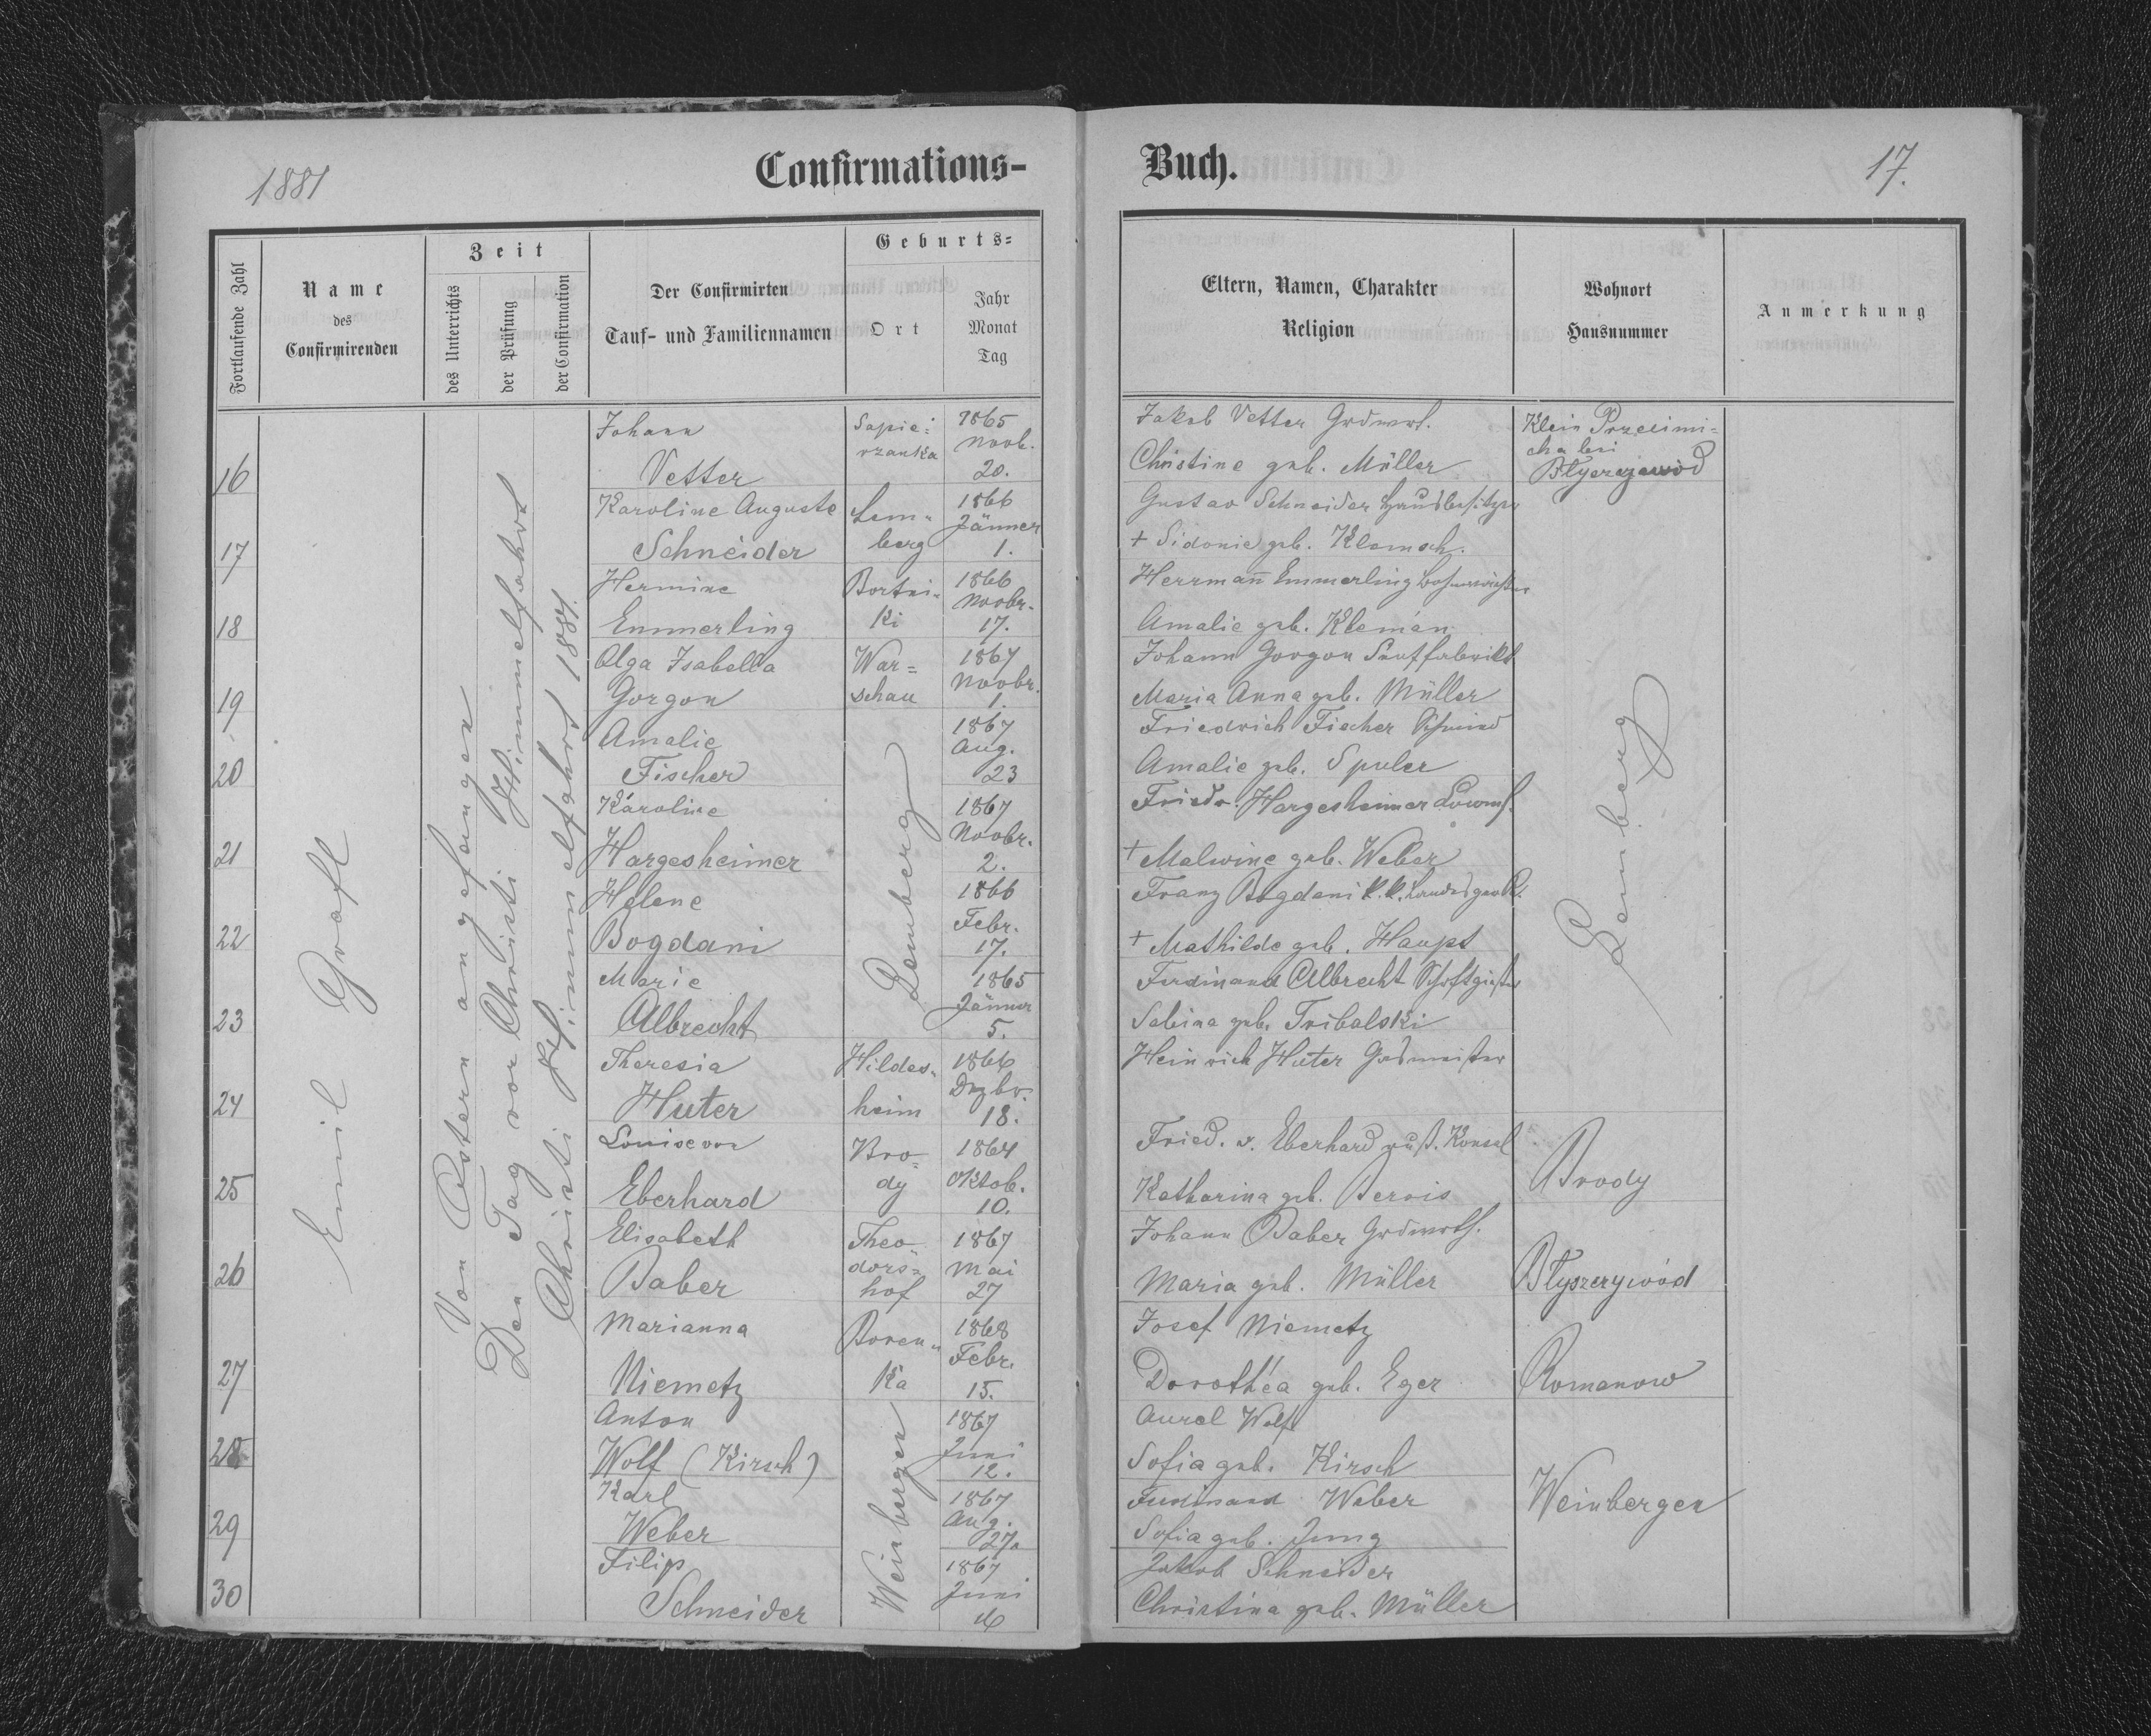 1881
Confirmations-
Buch.
17.
Fortlaufende Zahl
Name
des
Confirmirenden
Zeit
des Unterrichts
der Prüfung
der Confirmation
Der Confirmirten
Tauf- und Familiennamen
Geburts-
Ort
Jahr
Monat
Tag
Eltern, Namen, Charakter
Religion
Wohnort
Hausnummer
Anmerkung
Emil Graft
Von Ostern angefangen
Den Tag vor Christi Himmelfahrt
Christi Himmelfahrt 1881.
16
Johann
Vetter
Sapie-
rzanka
1865
Novb.
20.
Jakob Vetter Grdwrt.
Christine geb. Müller
Klein
bei
17
Karoline Auguste
Schneider
Lem-
berg
1866
Jänner
1.
Gustav Schneider
+ Sidonie geb. Klemsch.
Lemberg
18
Hermine
Emmerling
Bortni-
ki
1866
Novbr.
17.
Herrmann Emmerling
Amalie geb.
19
Olga Isabella
Gorgon
War-
schau
1867
Novbr.
1.
Johann Gorgon
Maria Anna geb. Müller
20
Amalie
Fischer
Lemberg
1867
Aug.
23
Friedrich Fischer Schmied
Amalie geb. Spuler
21
Karoline
Hargesheimer
1867
Novbr.
2.
Friedr. Hargesheimer
+ Malwine geb. Weber
22
Helene
Bogdani
1866
Febr.
17.
Franz Bogdani k. k.
+ Mathilde geb. Haupt
23
Marie
Albrecht
1865
Jänner
5.
Ferdinand Albrecht Schriftgießer
Sabina geb. Tribalski
24
Theresia
Huter
Hildes-
heim
1866
Dezbr.
18.
Heinrich Huter Gasmeister
25
Louise von
Eberhard
Bro-
dy
1864
Oktob.
10.
Fried. v. Eberhard ruß. Konsul
Katharina geb.
Brody
26
Elisabeth
Baber
Theo-
dors-
hof
1867
Mai
27
Johann Baber Grdwrth.
Maria geb. Müller
Błyszczywód
27
Marianna
Niemetz
Boren-
ka
1868
Febr.
15.
Josef Niemetz
Dorothea geb. Eger
Romanow
28
Anton
Wolf (Kirsch)
Weinbergen
1867
Juni
12.
Aurel Wolf
Sofia geb. Kirsch
Weinbergen
29
Karl
Weber
1867
Aug.
27.
Ferdinand Weber
Sofia geb. Jung
30
Filip
Schneider
1867
Juni
Jakob Schneider
Christina geb. Müller